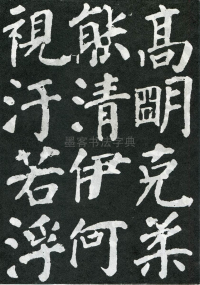 高朙克柔
能清伊何
視汙若浮
墨客书法字典